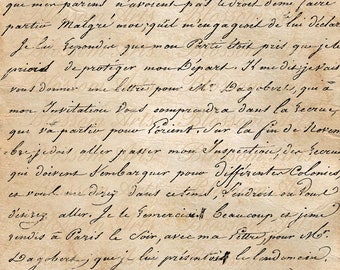 que mes parens n'avoient pas le droit de me faire
partir Malgré moi, qu'il m'engageoit de lui déclar
Je lui Répondis que mon Parti étoit pris que je le
priois de proteger mon Départ. Il me dit, je vais
vous donner une lettre pour Mr. Dagobert, qui à
mon Invitation Vous comprendra dans la Recrue,
qui va partir pour l'orient. Sur la fin de Novem
bre, je dois aller passer mon Inspection, des Recrues
qui doivent s'embarquer pour différentes Colonies,
et vous me direz dans ce tems, l'endroit où Vous
désirez aller. Je le Remerciai beaucoup, et je me
rendis à Paris le Soir, avec ma Lettre, pour Mr.
Dagobert, que je lui présentai le lendemain.